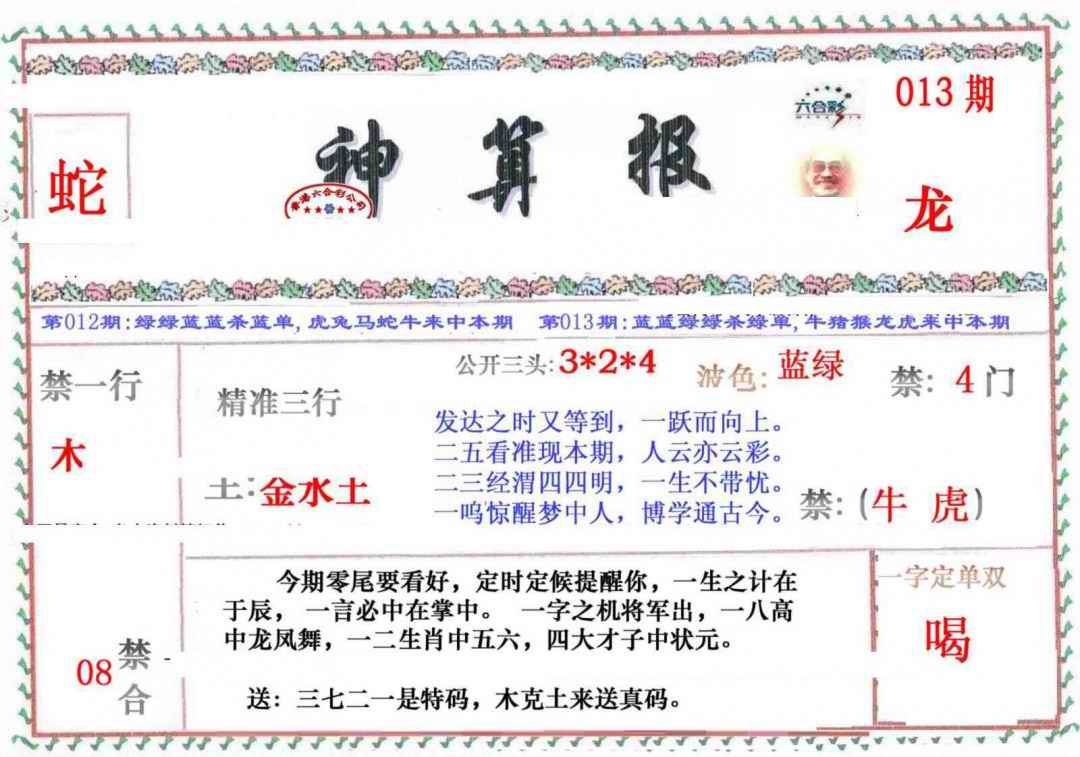 013期
六合彩
蛇
神算报
香港六合彩公司
龙
第012期:绿绿蓝蓝杀蓝单,虎兔马蛇牛来中本期 第013期:蓝蓝绿绿杀绿单,牛猪猴龙虎来中本期
禁一行
木
精准三行
土:金水土
公开三头:3*2*4
波色:蓝绿
禁: 4门
发达之时又等到，一跃而向上。
二五看准现本期，人云亦云彩。
二三经渭四四明，一生不带忧。
一呜惊醒梦中人，博学通古今。
禁:(牛 虎)
08禁合
今期零尾要看好，定时定候提醒你，一生之计在
于辰，一言必中在掌中。 一字之机将军出，一八高
中龙凤舞，一二生肖中五六，四大才子中状元。
送：三七二一是特码，木克土来送真码。
一字定单双
喝